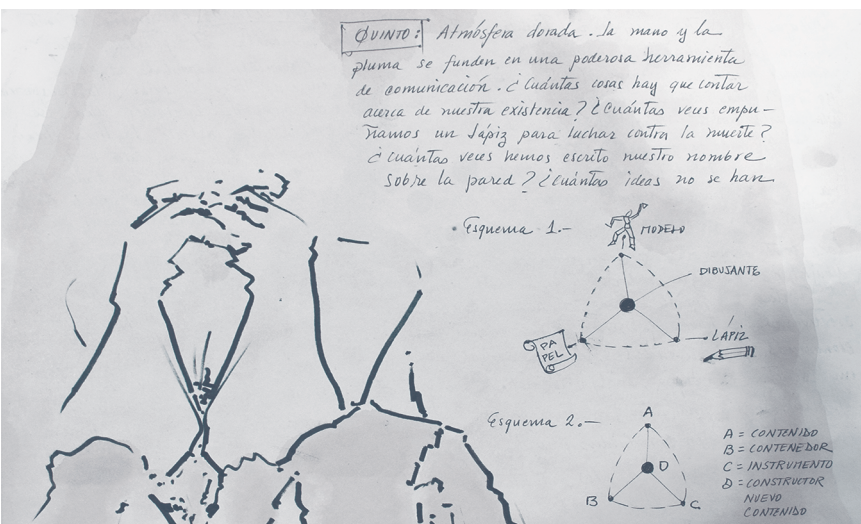 QUINTO: Atmósfera dorada. La mano y la
pluma se funden en una poderosa herramienta
de comunicación. ¿Cuántas cosas hay que contar
acerca de nuestra existencia? ¿Cuántas veces empu-
ñamos un lápiz para luchar contra la muerte?
¿Cuántas veces hemos escrito nuestro nombre
sobre la pared? ¿Cuántas ideas no se han
Esquema 1.-
MODELO
DIBUSANTE
LÁPIZ
PA
PEL
Esquema 2.-
A
D
B
C
A = CONTENIDO
B = CONTENEDOR
C = INSTRUMENTO
D = CONSTRUCTOR
NUEVO
CONTENIDO